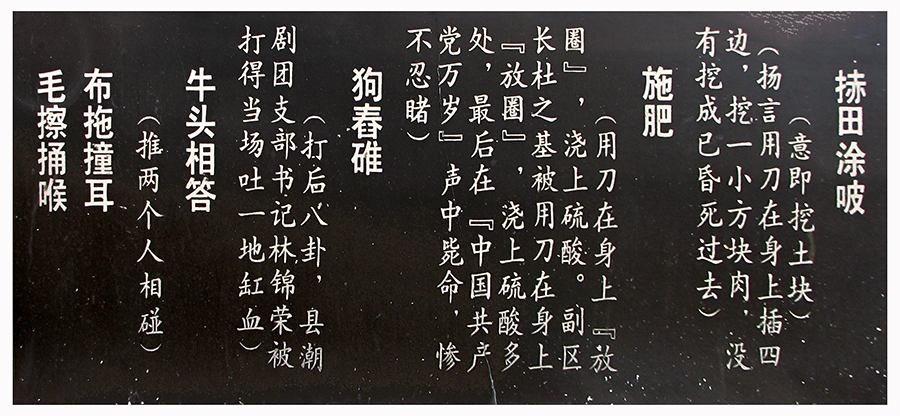 捇田涂
（意即挖土块）
（扬言用刀在身上插四
边，挖一小方块肉，没
有挖成已昏死过去）
施肥
（用刀在身上『放
圈』，浇上硫酸。副区
长杜之基被用刀在身上
『放圈』，浇上硫酸多
处，最后在『中国共产
党万岁』声中毙命，惨
不忍睹）
狗舂碓
（打后八卦，县潮
剧团支部书记林锦荣被
打得当场吐一地缸血）
牛头相答
（推两个人相碰）
布拖撞耳
毛擦捅喉